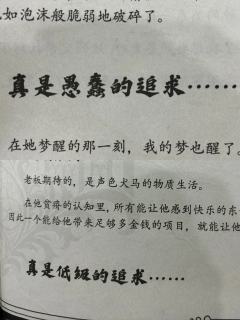 如泡沫般脆弱地破碎了。
真是愚蠢的追求……
在她梦醒的那一刻，我的梦也醒了。
老板期待的，是声色犬马的物质生活。
在他贫瘠的认知里，所有能让他感到快乐的东
因此一个能给他带来足够多金钱的项目，就能让他
真是低级的追求……